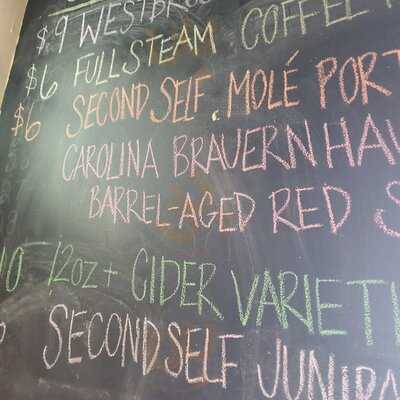 $9 WESTBRO
$6 FULLSTEAM COFFEE
$6 SECOND SELF MOLÉ PORT
CAROLINA BRAUERNHAU
BARREL-AGED RED S
10 12oz+ CIDER VARIET
SECOND SELF JUNIPE